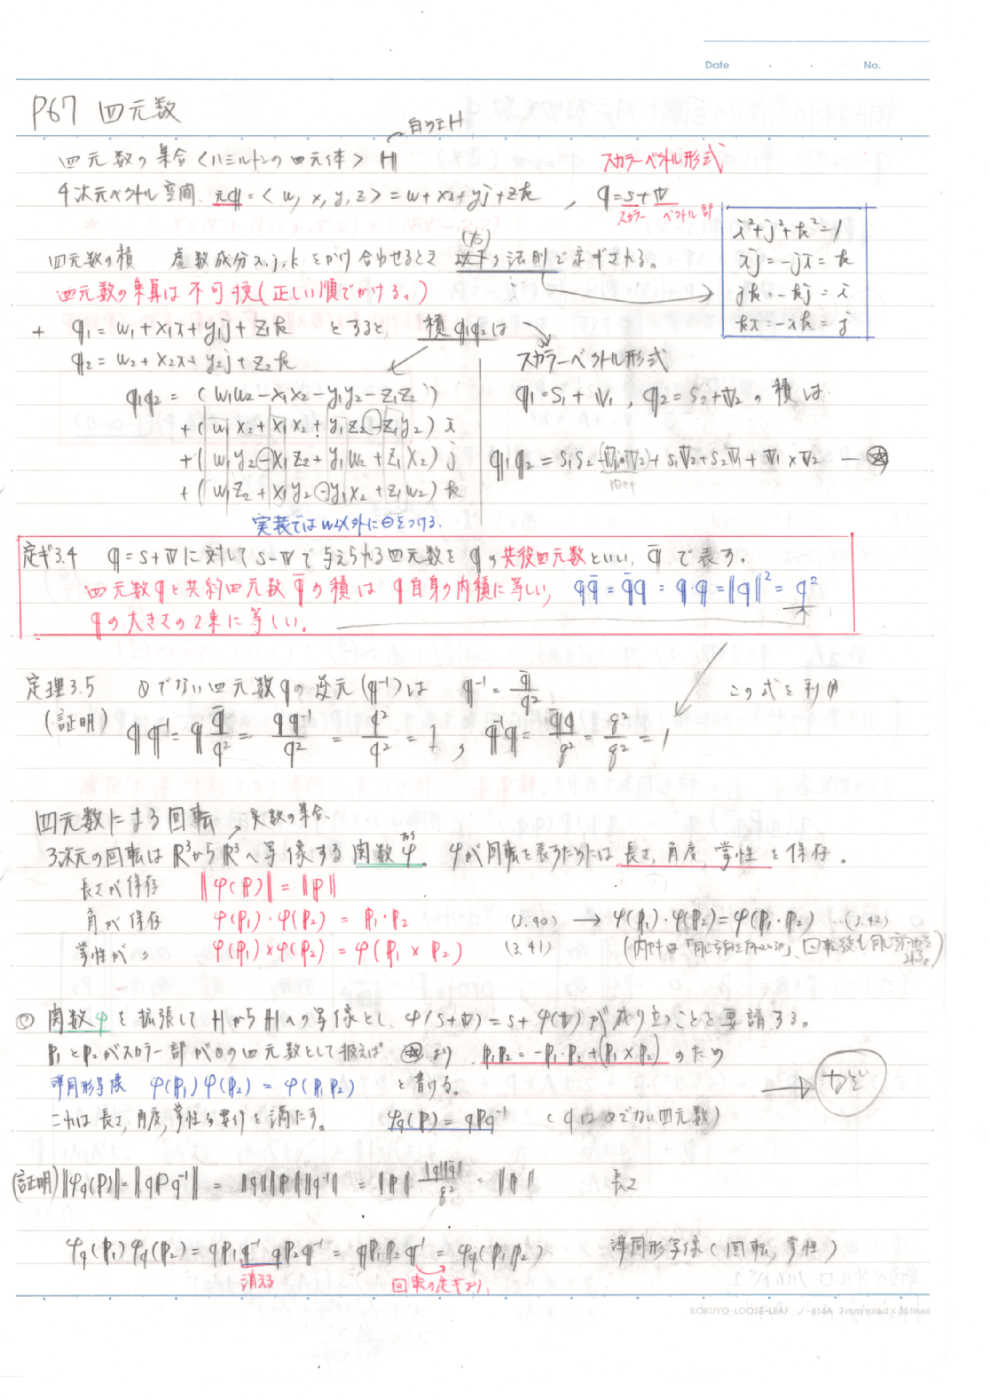 Date ・ ・ No.
P67 四元数
白ヌキH
四元数の集合〈ハミルトンの四元体〉 ℍ
スカラーベクトル形式
4次元ベクトル空間. 元q = 〈w, x, y, z〉 = w+xi+yj+zk , q=s+v
スカラー ベクトル部
i²+j²+k²=-1
ij=-ji=k
jk=-kj=i
ki=-ik=j
四元数の積 虚数成分i,j,kをかけ合わせるとき 以下の法則で定ギされる。
(右)
四元数の乗算は不可換(正しい順でかける。)
+ q₁=w₁+x₁i+y₁j+z₁k とすると, 積q₁q₂は
q₂=w₂+x₂i+y₂j+z₂k
スカラーベクトル形式
q₁q₂ = (w₁w₂-x₁x₂-y₁y₂-z₁z₂)
+(w₁x₂+x₁x₂+y₁z₂-z₁y₂) i
+(w₁y₂-x₁z₂+y₁w₂+z₁x₂) j
+(w₁z₂+x₁y₂-y₁x₂+z₁w₂) k
q₁=s₁+v₁, q₂=s₂+v₂ の積は
q₁q₂=s₁s₂-v₁・v₂+s₁v₂+s₂v₁+v₁×v₂ ―
実装ではw以外に⊖をつける.
定ギ3.4 q=s+vに対してs-vで与えられる四元数をqの共役四元数といい, q̄で表す.
四元数qと共約四元数q̄の積はq自身の内積に等しい, qq̄=q̄q=q・q=‖q‖²=q²
qの大きさの2乗に等しい.
定理3.5 0でない四元数qの逆元(q⁻¹)は q⁻¹=q̄/q²
この式を利用
(証明) qq⁻¹=q q̄/q²=qq⁻¹/q²=q²/q²=1, q⁻¹q=q̄q/q²=q²/q²=1
四元数による回転
実数の集合.
3次元の回転はR³からR³へ写像する関数φ. φが回転を表すためには長さ, 角度, 掌性を保存.
長さが保存 ‖φ(P)‖=‖P‖
角が保存 φ(P₁)・φ(P₂)=P₁・P₂ (3.40) → φ(P₁)・φ(P₂)=φ(P₁・P₂) …(3.42)
掌性が〃 φ(P₁)×φ(P₂)=φ(P₁×P₂) (3.41)
関数φを拡張してHからHへの写像とし, φ(s+v)=s+φ(v)が成り立つことを要請する.
P₁とP₂がスカラー部が0の四元数として扱えば より, P₁P₂=-P₁・P₂+(P₁×P₂) のため
準同形写像 φ(P₁)φ(P₂)=φ(P₁P₂) と書ける.
など
これは長さ,角度,掌性の要件を満たす. φq(P)=qPq⁻¹ (qは0でない四元数)
(証明)‖φq(P)‖=‖qPq⁻¹‖=‖q‖‖P‖‖q⁻¹‖=‖P‖ ‖q‖‖q̄‖/q²=‖P‖ 長さ
φq(P₁)φq(P₂)=qP₁q⁻¹qP₂q⁻¹=qP₁P₂q⁻¹=φq(P₁P₂) 準同形写像(回転,掌性)
消える
回転の定ギより,
KOKUYO LOOSE-LEAF